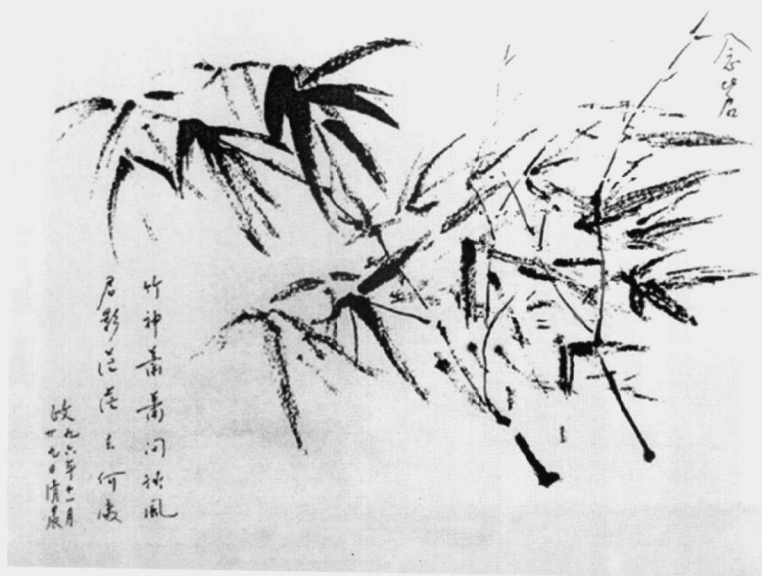 念此君
竹神蕭蕭问秋風
君影茫茫去何處
政九六年十一月
廿九日清晨